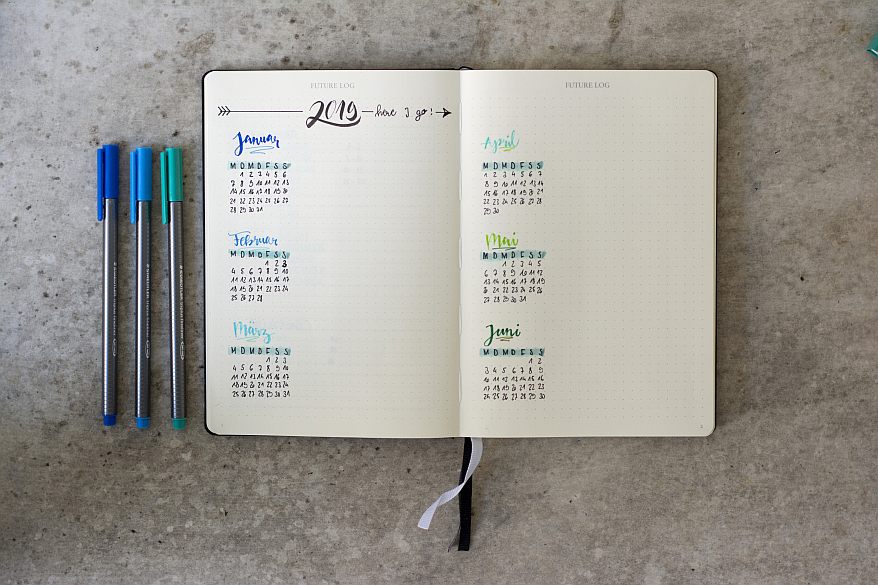 FUTURE LOG
2019 here I go!
Januar
M D M D F S S
1 2 3 4 5 6
7 8 9 10 11 12 13
14 15 16 17 18 19 20
21 22 23 24 25 26 27
28 29 30 31
Februar
M D M D F S S
1 2 3
4 5 6 7 8 9 10
11 12 13 14 15 16 17
18 19 20 21 22 23 24
25 26 27 28
März
M D M D F S S
1 2 3
4 5 6 7 8 9 10
11 12 13 14 15 16 17
18 19 20 21 22 23 24
25 26 27 28 29 30 31
FUTURE LOG
April
M D M D F S S
1 2 3 4 5 6 7
8 9 10 11 12 13 14
15 16 17 18 19 20 21
22 23 24 25 26 27 28
29 30
Mai
M D M D F S S
1 2 3 4 5
6 7 8 9 10 11 12
13 14 15 16 17 18 19
20 21 22 23 24 25 26
27 28 29 30 31
Juni
M D M D F S S
1 2
3 4 5 6 7 8 9
10 11 12 13 14 15 16
17 18 19 20 21 22 23
24 25 26 27 28 29 30
STAEDTLER
STAEDTLER
STAEDTLER